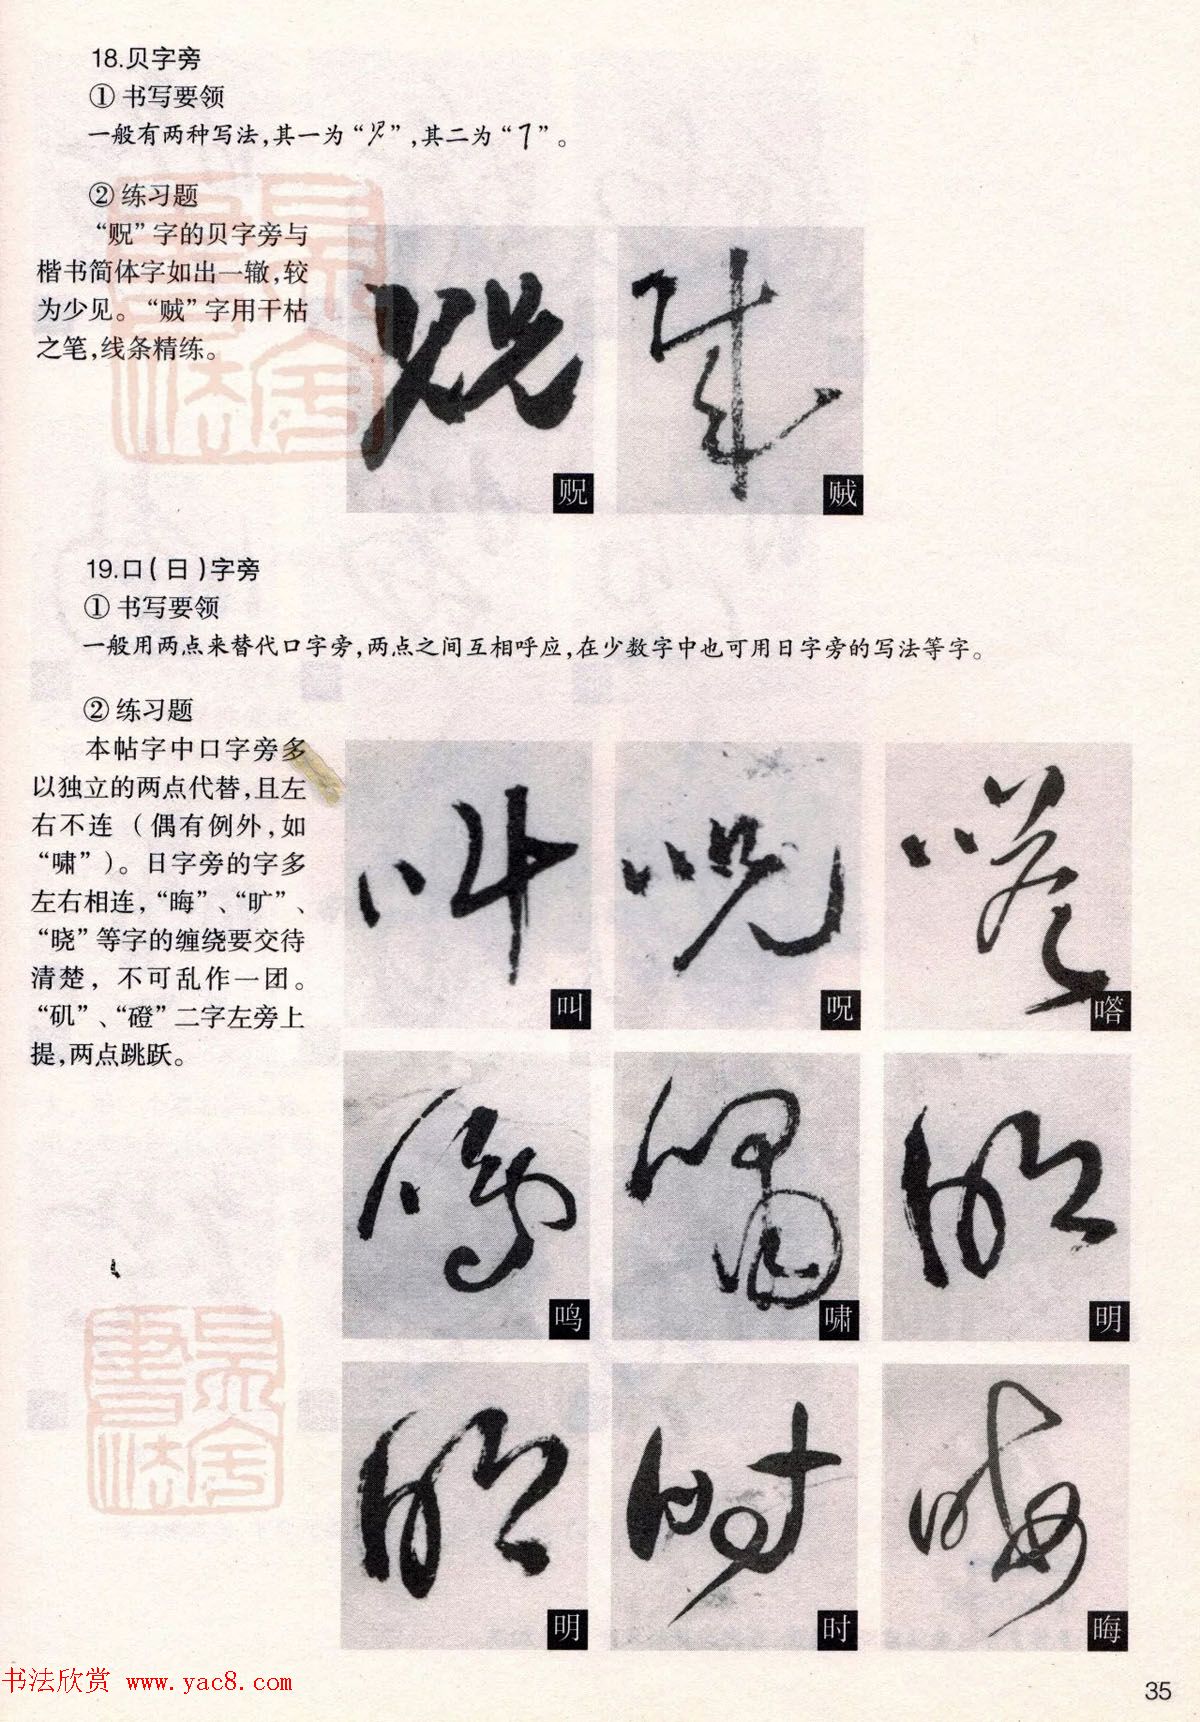 18.贝字旁
①书写要领
一般有两种写法,其一为“”,其二为“”。
②练习题
“贶”字的贝字旁与
楷书简体字如出一辙,较
为少见。“贼”字用干枯
之笔,线条精练。
贶
贼
19.口(日)字旁
①书写要领
一般用两点来替代口字旁,两点之间互相呼应,在少数字中也可用日字旁的写法等字。
②练习题
本帖字中口字旁多
以独立的两点代替,且左
右不连(偶有例外,如
“啸”)。日字旁的字多
左右相连,“晦”、“旷”、
“晓”等字的缠绕要交待
清楚,不可乱作一团。
“矶”、“磴”二字左旁上
提,两点跳跃。
叫
呪
嗒
鸣
啸
明
明
时
晦
书法欣赏 www.yac8.com
35